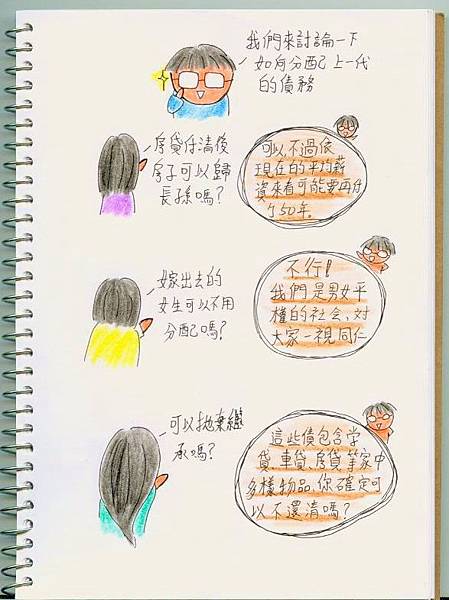 我們來討論一下
如何分配上一代
的債務
房貸付清後
房子可以歸
長孫嗎？
可以不過依
現在的平均薪
資來看可能要再付
個50年。
嫁出去的
女生可以不用
分配嗎？
不行！
我們是男女平
權的社会，对
大家一視同仁
可以拋棄繼
承嗎？
這些債包含学
貸、車貸、房貸等家中
多樣物品，你確定可
以不還清嗎？